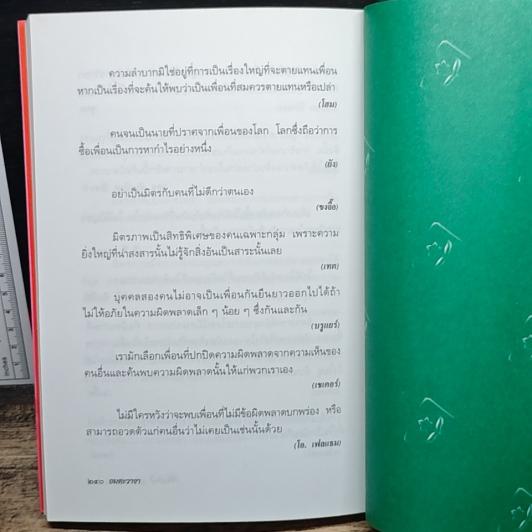 ความลำบากมิใช่อยู่ที่การเป็นเรื่องใหญ่ที่จะตายแทนเพื่อน
หากเป็นเรื่องที่จะค้นให้พบว่าเป็นเพื่อนที่สมควรตายแทนหรือเปล่า
(โฮม)
คนจนเป็นนายที่ปราศจากเพื่อนของโลก โลกซึ่งถือว่าการ
ซื้อเพื่อนเป็นการหากำไรอย่างหนึ่ง
(ยัง)
อย่าเป็นมิตรกับคนที่ไม่ดีกว่าตนเอง
(ขงจื๊อ)
มิตรภาพเป็นสิทธิพิเศษของคนเฉพาะกลุ่ม เพราะความ
ยิ่งใหญ่ที่น่าสงสารนั้นไม่รู้จักสิ่งอันเป็นสาระนั้นเลย
(เทต)
บุคคลสองคนไม่อาจเป็นเพื่อนกันยืนยาวออกไปได้ถ้า
ไม่ให้อภัยในความผิดพลาดเล็ก ๆ น้อย ๆ ซึ่งกันและกัน
(บรูแยร์)
เรามักเลือกเพื่อนที่ปกปิดความผิดพลาดจากความเห็นของ
คนอื่นและค้นพบความผิดพลาดนั้นให้แก่พวกเราเอง
(เซเคอร์)
ไม่มีใครหวังว่าจะพบเพื่อนที่ไม่มีข้อผิดพลาดบกพร่อง หรือ
สามารถอวดตัวแก่คนอื่นว่าไม่เคยเป็นเช่นนั้นด้วย
(โอ. เฟลแธม)
๒๔๐ อมตะวาจา